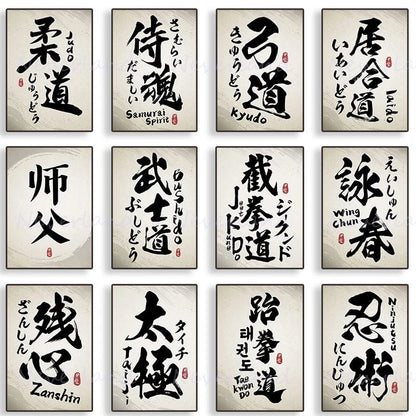 柔道
Judo
じゅうどう
侍魂
さむらい
だましい
Samurai
Spirit
弓道
きゅうどう
Kyudo
居合道
いあいどう
Iaido
师父
武士道
Bushido
ぶしどう
截拳道
ジークンド
Jeet
Kune
Do
詠春
えいしゅん
Wing
Chun
残心
ざんしん
Zanshin
太極
タイチ
Taiji
跆拳道
태권도
Taekwon
DO
忍術
Ninjutsu
にんじゅつ